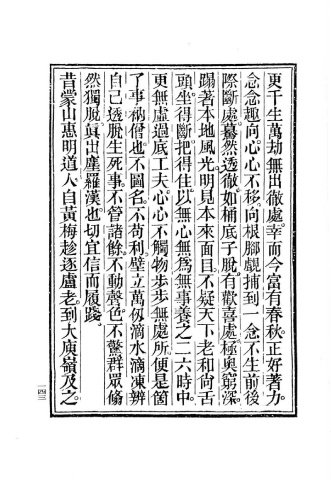 更千生萬劫無出徹處。幸而今富有春秋。正好著力。
念念趣向。心心不移。向根腳覷捕。到一念不生前後
際斷處。驀然透徹。如桶底子脫。有歡喜處。極奧窮深。
蹋著本地風光。明見本來面目。不疑天下老和尚舌
頭。坐得斷。把得住。以無心無爲無事養之。二六時中。
更無虛過底工夫。心心不觸物。步步無處所。便是箇
了事衲僧也。不圖名。不苟利。壁立萬仞。滴水滴凍。辨
自己透脫生死事。不管諸餘。不動聲色。不驚群眾。翛
然獨脫。眞出塵羅漢也。切宜信而履踐。
昔蒙山惠明道人。自黃梅趁逐盧老。到大庾嶺及之。
一四三